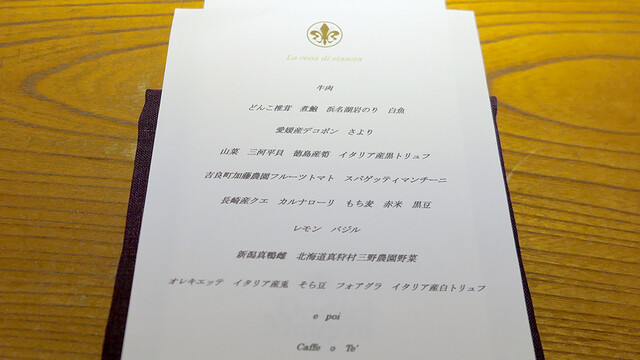 La cena di stasera
牛肉
どんこ椎茸 煮鮑 浜名湖岩のり 白魚
愛媛産デコポン さより
山菜 三河平貝 徳島産筍 イタリア産黒トリュフ
吉良町加藤農園フルーツトマト スパゲッティマンチーニ
長崎産クエ カルナローリ もち麦 赤米 黒豆
レモン バジル
新潟真鴨雌 北海道真狩村三野農園野菜
オレキエッテ イタリア産兎 そら豆 フォアグラ イタリア産白トリュフ
e poi
Caffe o Te'